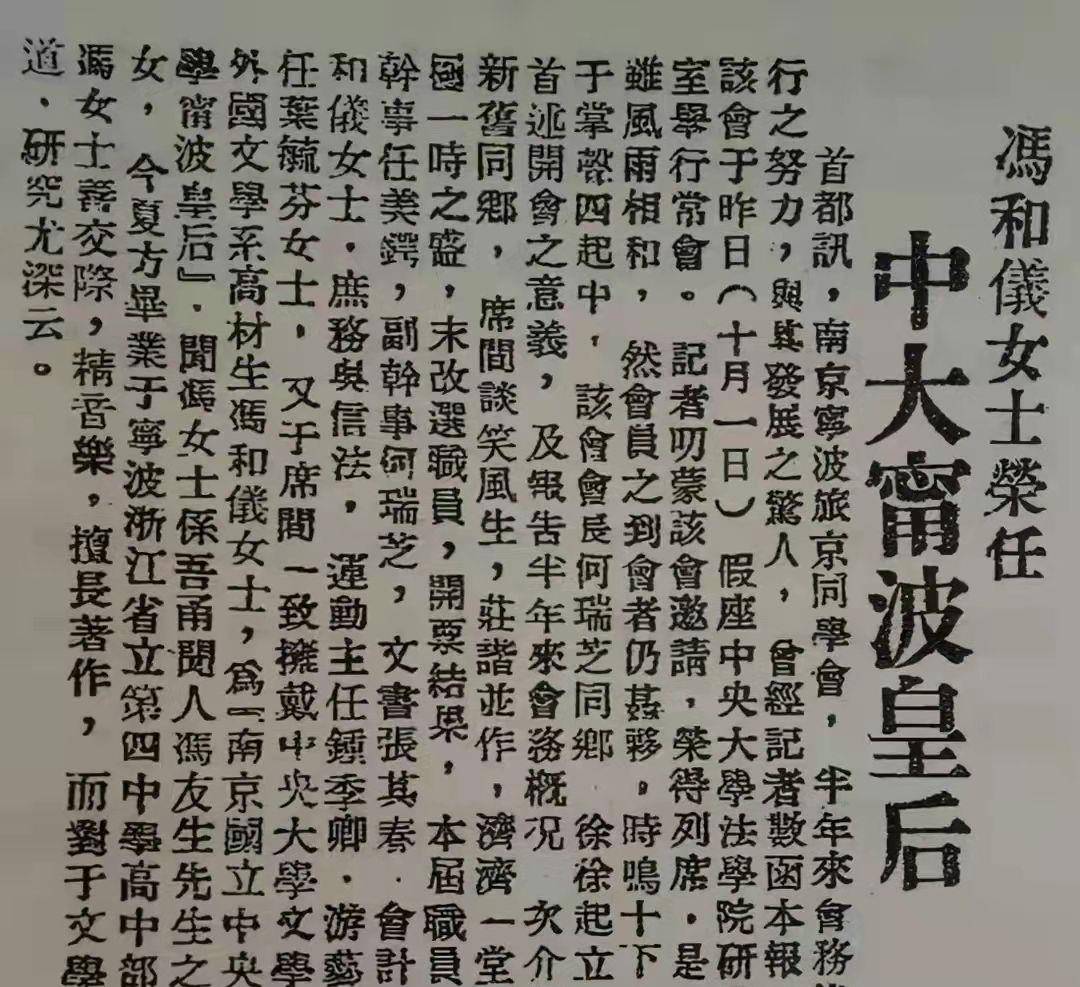 馮和儀女士榮任
中大甯波皇后
首都訊，南京寧波旅京同學會，半年來會務
行之努力，與其發展之驚人，曾經記者數函本報
該會于昨日（十月一日）假座中央大學法學院研
室舉行常會。記者叨蒙該會邀請，榮得列席．是
雖風雨相和，然會員之到會者仍甚夥。時鳴十下
于掌聲四起中，該會會長何瑞芝同鄉　徐徐起立
首述開會之意義，及報告半年來會務概況　次介
新舊同鄉，席間談笑風生，莊諧並作，濟濟一堂
極一時之盛，末改選職員，開票結果，本屆職員
幹事任美鍔，副幹事何瑞芝，文書張其春．會計
和儀女士．庶務與信法，運動主任鍾季卿．游藝
任葉毓芬女士，又于席間一致擁戴中央大學文學
外國文學系高材生馮和儀女士，爲『南京國立中央
學甯波皇后』．聞馮女士係吾甬聞人馮友生先生之
女，今夏方畢業于寧波浙江省立第四中學高中部
馮女士善交際，精音樂，擅長著作，而對于文學
道．研究尤深云。